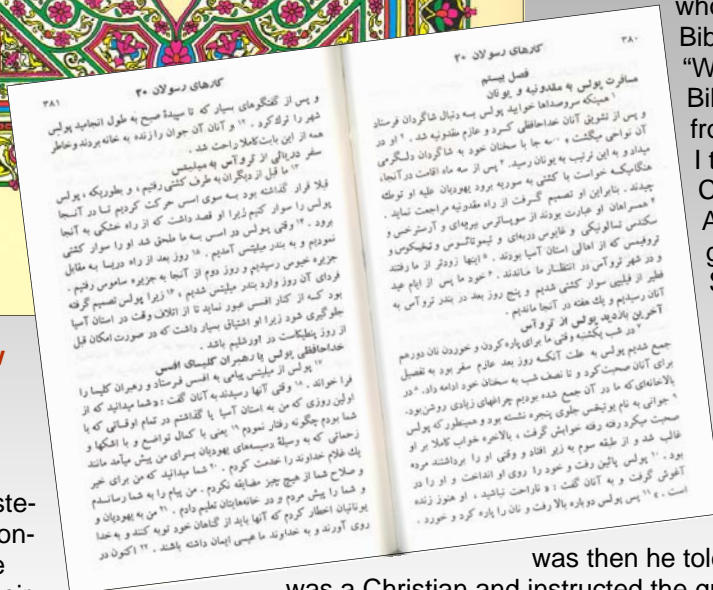 who
Bib
“W
Bil
fro
I t
C
A
g
S
۳۸۰
کارهای رسولان ۲۰
فصل بیستم
مسافرت پولس به مقدونیه و یونان
۱ همینکه سروصداها خوابید پولس بـه دنبال شاگردان فرستاد
و پس از تشویق آنان خداحافظی کـرد و عازم مقدونیه شد . ۲ او در
آن نواحی میگشت و همه جا با سخنان خود به شاگردان دلـگرمی
میداد و به این ترتیب به یونان رسید. ۳ پس از سه ماه اقامت در آنجا،
هنگامیکـه خواست با کشتی به سوریه برود یهودیان علیه او توطئه
چیدند . بنابراین او تصمیم گـرفت از راه مقدونیه مراجعت نماید .
۴ همسراهان او عبارت بودند از سوپاترس بیریه‌ای و آرسترخس و
سکندس تسالونیکی و غایوس دربه‌ای و تیموتائـوس و تیخیکوس و
تروفیمس که از اهالی استان آسیا بودند . ۵ اینها زودتر از ما رفتند
و در شهر تروآس در انتظـار ما مـاندند . ۶ خود ما پس از ایام عید
فطیر از فیلیپی سوار کشتی شدیم و پنج روز بعد در بندر تروآس به
آنان رسیدیم و یك هفته در آنجا ماندیم .
آخرین بازدید پولس از تروآس
۷ در شب یکشنبه وقتی ما برای پاره کردن و خوردن نان دور هم
جمع شدیم پولس به علت آنکه روز بعد عازم سفر بود به تفصیل
برای آنان صحبت کرد و تا نصف شب به سخنان خود ادامه داد. ۸ در
بالاخانه‌ای که ما در آن جمع شده بودیم چراغهای زیادی روشن بود.
۹ جوانی به نام یوتیخس جلوی پنجره نشسته بود و همینطور که پولس
صحبت میکرد رفته رفته خوابش گرفت ، بالاخره خواب کاملا بر او
غالب شد و از طبقه سوم به زیر افتاد و وقتی او را برداشتند مرده
بود . ۱۰ پولس پائین رفت و خود را روی او انداخت و او را در
آغوش گرفت و به آنان گفت : « ناراحت نباشید ، او هنوز زنده
است . » ۱۱ پس پولس دوباره بالا رفت و نان را پاره کرد و خورد .
۳۸۱
کارهای رسولان ۲۰
و پس از گفتگوهای بسیار که تا سپیدهٔ صبح به طول انجامید پولس
شهر را ترك کرد . ۱۲ و آنان آن جوان را زنده به خانه بردند و خاطر
همه از این بابت کاملا راحت شد .
سفر دریائی از تروآس به میلیتس
۱۳ ما قبل از دیگران به طرف کشتی رفتیم ، و بطوریکه ، پولس
قبلا قرار گذاشته بود بـه سوی اسس حرکت کردیم تـا در آنـجا
پولس را سوار کنیم زیرا او قصد داشت که از راه خشکی به آنجا
برود . ۱۴ وقتی پولس در اسس بـه ما ملحق شد او را سوار کشتی
نمودیم و به بندر میلیتس آمدیم . ۱۵ روز بعد از راه دریـا به مقابل
جزیره خیوس رسیدیم و روز دوم از آنجا به جزیره ساموس رفتیم .
فردای آن روز وارد بندر میلیتس شدیم ، ۱۶ زیرا پولس تصمیم گرفته
بود کـه از کنار افسس عبور نماید تا از اتلاف وقت در استان آسیا
جلوگیری شود زیرا او اشتیاق بسیار داشت که در صورت امکان قبل
از روز پنطیکاست در اورشلیم باشد .
خداحافظی پولس با رهبران کلیسای افسس
۱۷ پولس از میلیتس پیامی به افسس فرستاد و رهبران کلیسا را
فرا خواند . ۱۸ وقتی آنها رسیدند به آنان گفت : « شما میدانید که از
اولین روزی که من به استان آسیا پا گذاشتم در تمام اوقـاتی که با
شما بودم چگونه رفتار نمودم ۱۹ یعنی با کمال تواضـع و با اشکها و
زحماتی که به وسیلهٔ دسیسه‌های یهودیان برای من پیش میآمد مانند
یك غلام خداوند را خدمت کردم . ۲۰ شما میدانید که من برای خیر
و صلاح شما از هیچ چیز مضایقه نکردم . من پیام را به شما رسانـدم
و شما را پیش مردم و در خانه‌هایتان تعلیم دادم . ۲۱ من به یهودیان و
یونانیان اخطار کردم که آنها باید از گناهان خود توبه کنند و به خدا
روی آورند و به خداوند ما عیسی ایمان داشته باشند . ۲۲ اکنون در
y
ste-
on-
e
eir
was then he told
was a Christian and instructed the gu